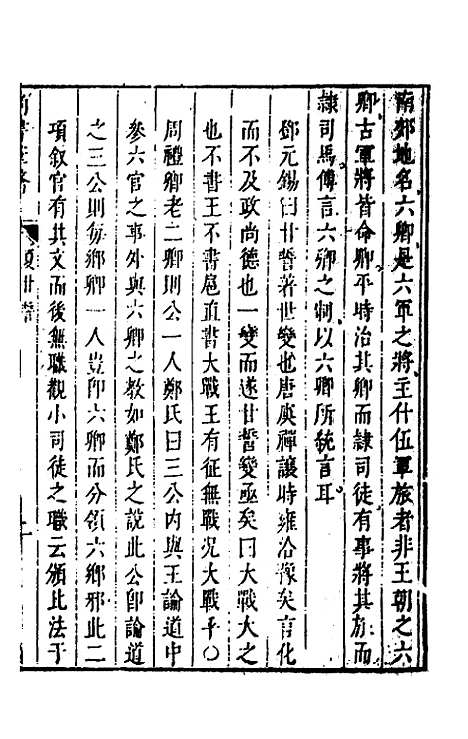 南郊地名六卿是六軍之將主什伍軍旅者非王朝之六
卿古軍將皆命卿平時治其卿而隷司徒有事將其旅而
隷司馬傳言六卿之制以六卿所統言耳
鄧元錫曰甘誓著世變也唐虞禪讓時雍洽豫矣言化
而不及政尚德也一變而遂甘誓變亟矣曰大戰大之
也不書王不書扈直書大戰王有征無戰况大戰乎○
周禮卿老二卿則公一人鄭氏曰三公内與王論道中
參六官之事外與六卿之教如鄭氏之說此公卽論道
之三公則每鄉卿一人豈卽六卿而分領六鄉邪此二
項叙官有其文而後無職觀小司徒之職云頒比法于
夏甘誓